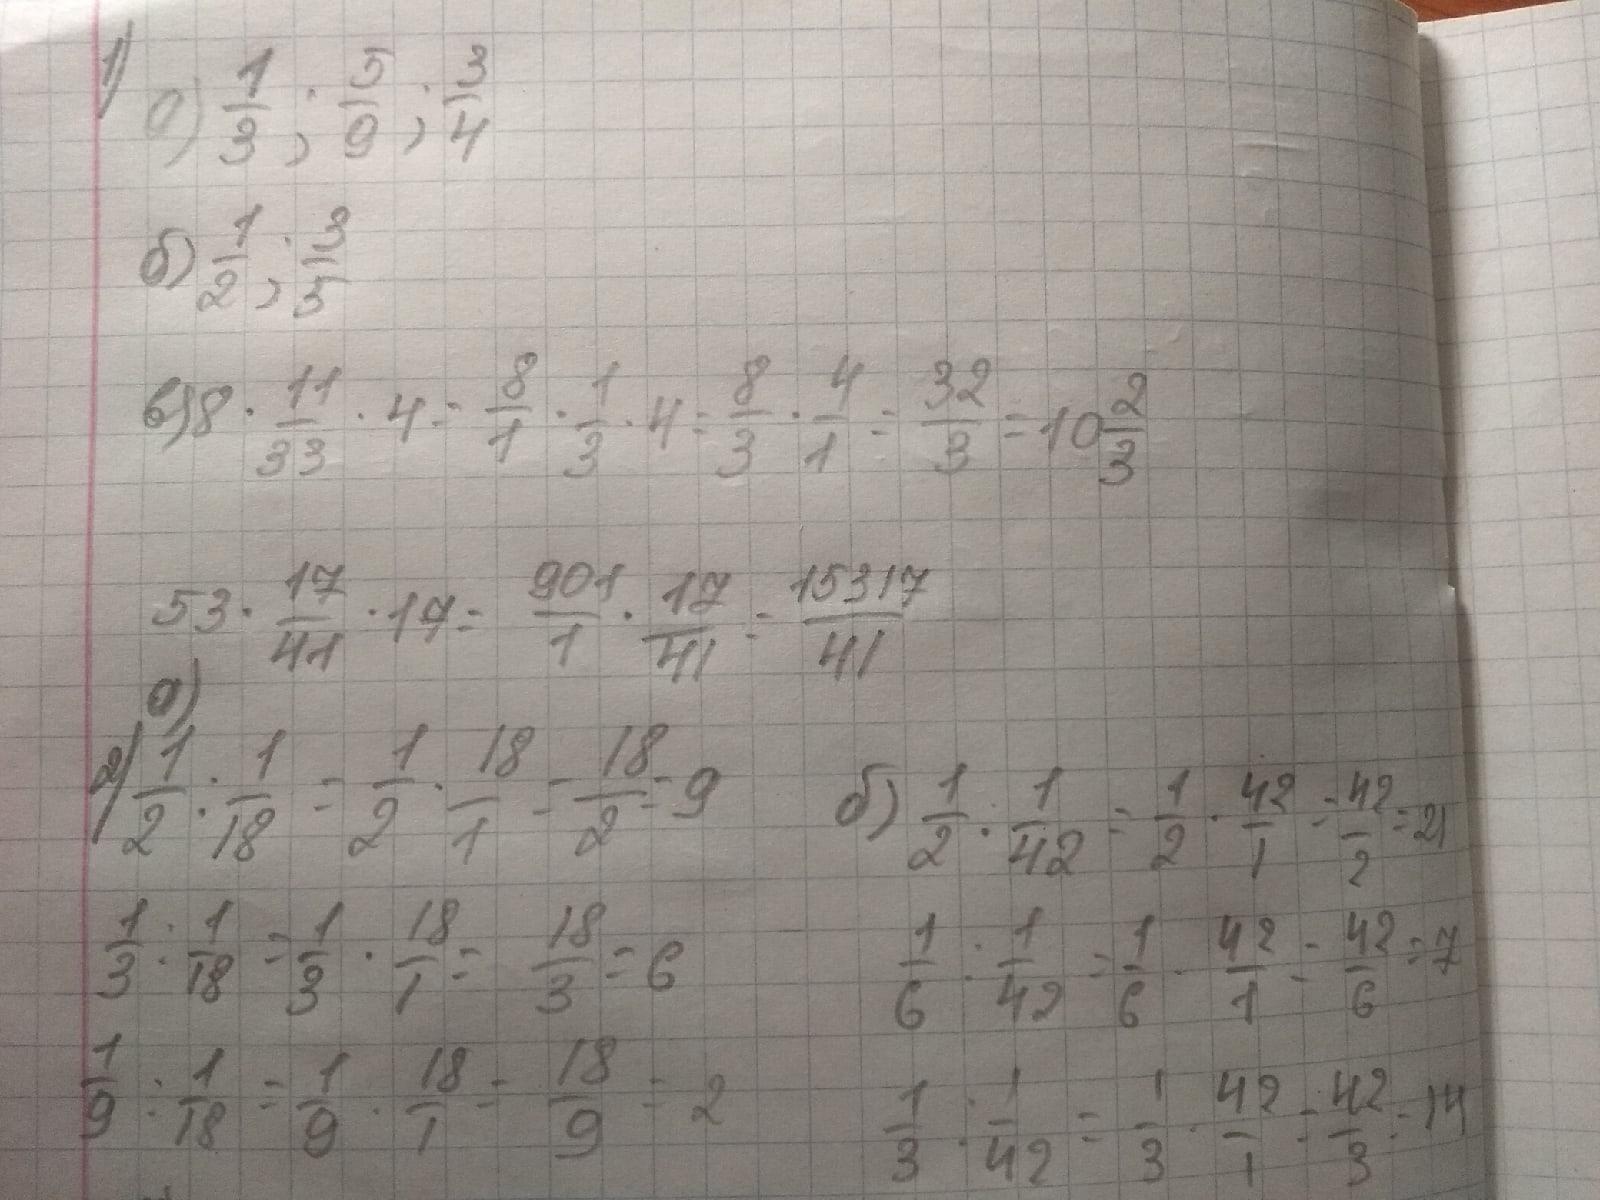 1) а) 1/3 ; 5/9 ; 3/4
б) 1/2 ; 3/5
в) 8 · 11/33 · 4 = 8/1 · 1/3 · 4 = 8/3 · 4/1 = 32/3 = 10 2/3
53 · 17/41 · 17 = 901/1 · 17/41 = 15317/41
а)
2) 1/2 : 1/18 = 1/2 · 18/1 = 18/2 = 9
1/3 : 1/18 = 1/3 · 18/1 = 18/3 = 6
1/9 : 1/18 = 1/9 · 18/1 = 18/9 = 2
б) 1/2 : 1/42 = 1/2 · 42/1 = 42/2 = 21
1/6 : 1/42 = 1/6 · 42/1 = 42/6 = 7
1/3 : 1/42 = 1/3 · 42/1 = 42/3 = 14